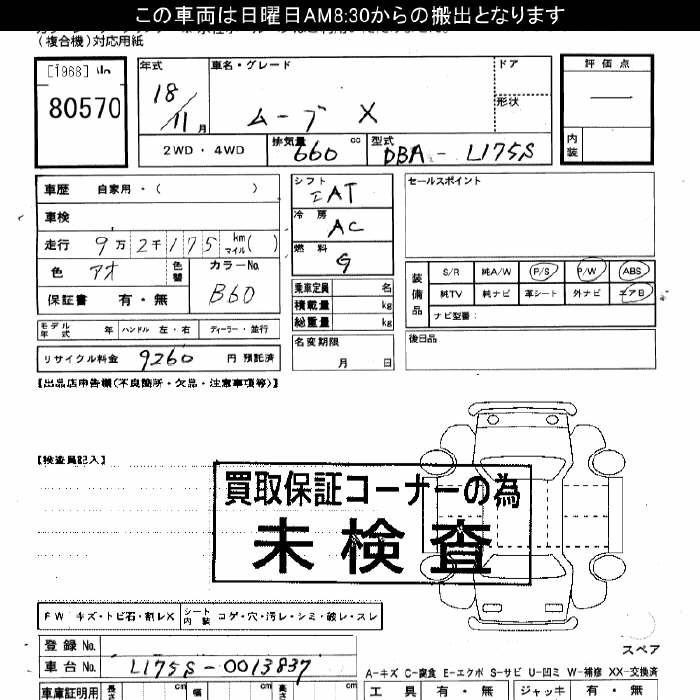 この車両は日曜日AM8:30からの搬出となります
(複合機)対応用紙
[1968]
80570
年式
18/11月
車名・グレード
ムーブ X
ドア
形状
評価点
―
内装
2WD・4WD
排気量
660 cc
型式
DBA-L175S
車歴 自家用・( )
車検
走行 9万2千175 km マイル( )
色 アオ
色替
カラーNo.
B60
保証書 有・無
モデル年式 年
ハンドル 左・右
ディーラー・並行
リサイクル料金 9260 円 預託済
シフト
エAT
冷房
AC
燃料
G
乗車定員 名
積載量 kg
総重量 kg
名変期限
月 日
セールスポイント
装備品
S/R 純A/W P/S P/W ABS
純TV 純ナビ 革シート 外ナビ エアB
ナビ型番:
後日品
【出品店申告欄(不良箇所・欠品・注意事項等)】
【検査員記入】
買取保証コーナーの為
未検査
FW キズ・トビ石・割レX
シート内装 コゲ・穴・汚レ・シミ・破レ・スレ
スペア
登録No.
車台No. L175S-0013837
A-キズ C-腐食 E-エクボ S-サビ U-凹ミ W-補修 XX-交換済
車庫証明用 長さ cm 幅 cm 高さ cm
工具 有・無 ジャッキ 有・無